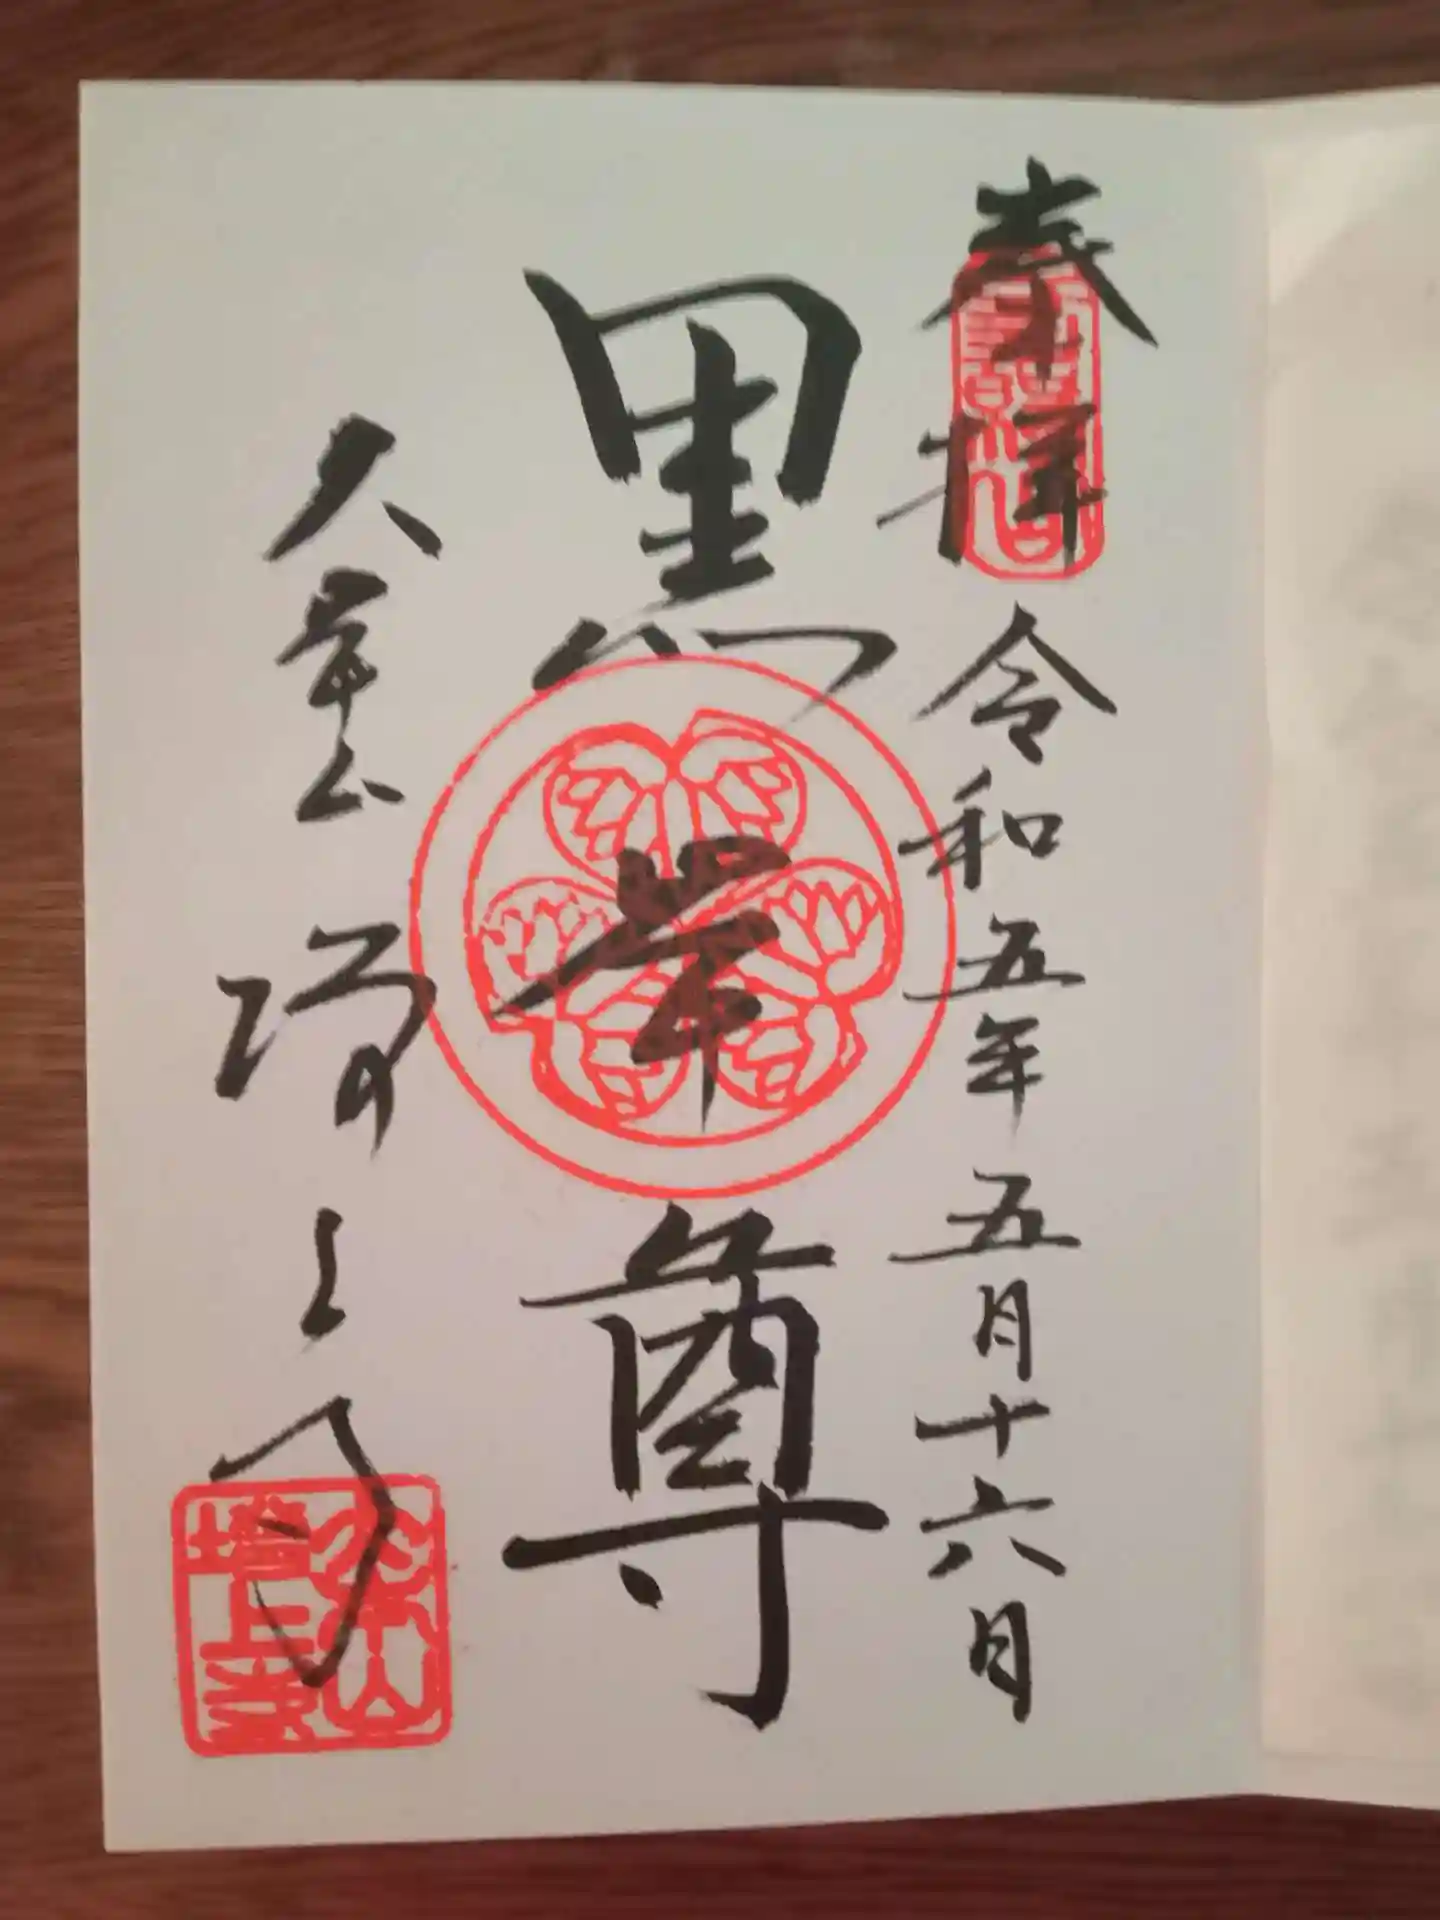 奉拝 令和五年五月十六日
黒本尊
大本山 増上寺
大本山
増上寺